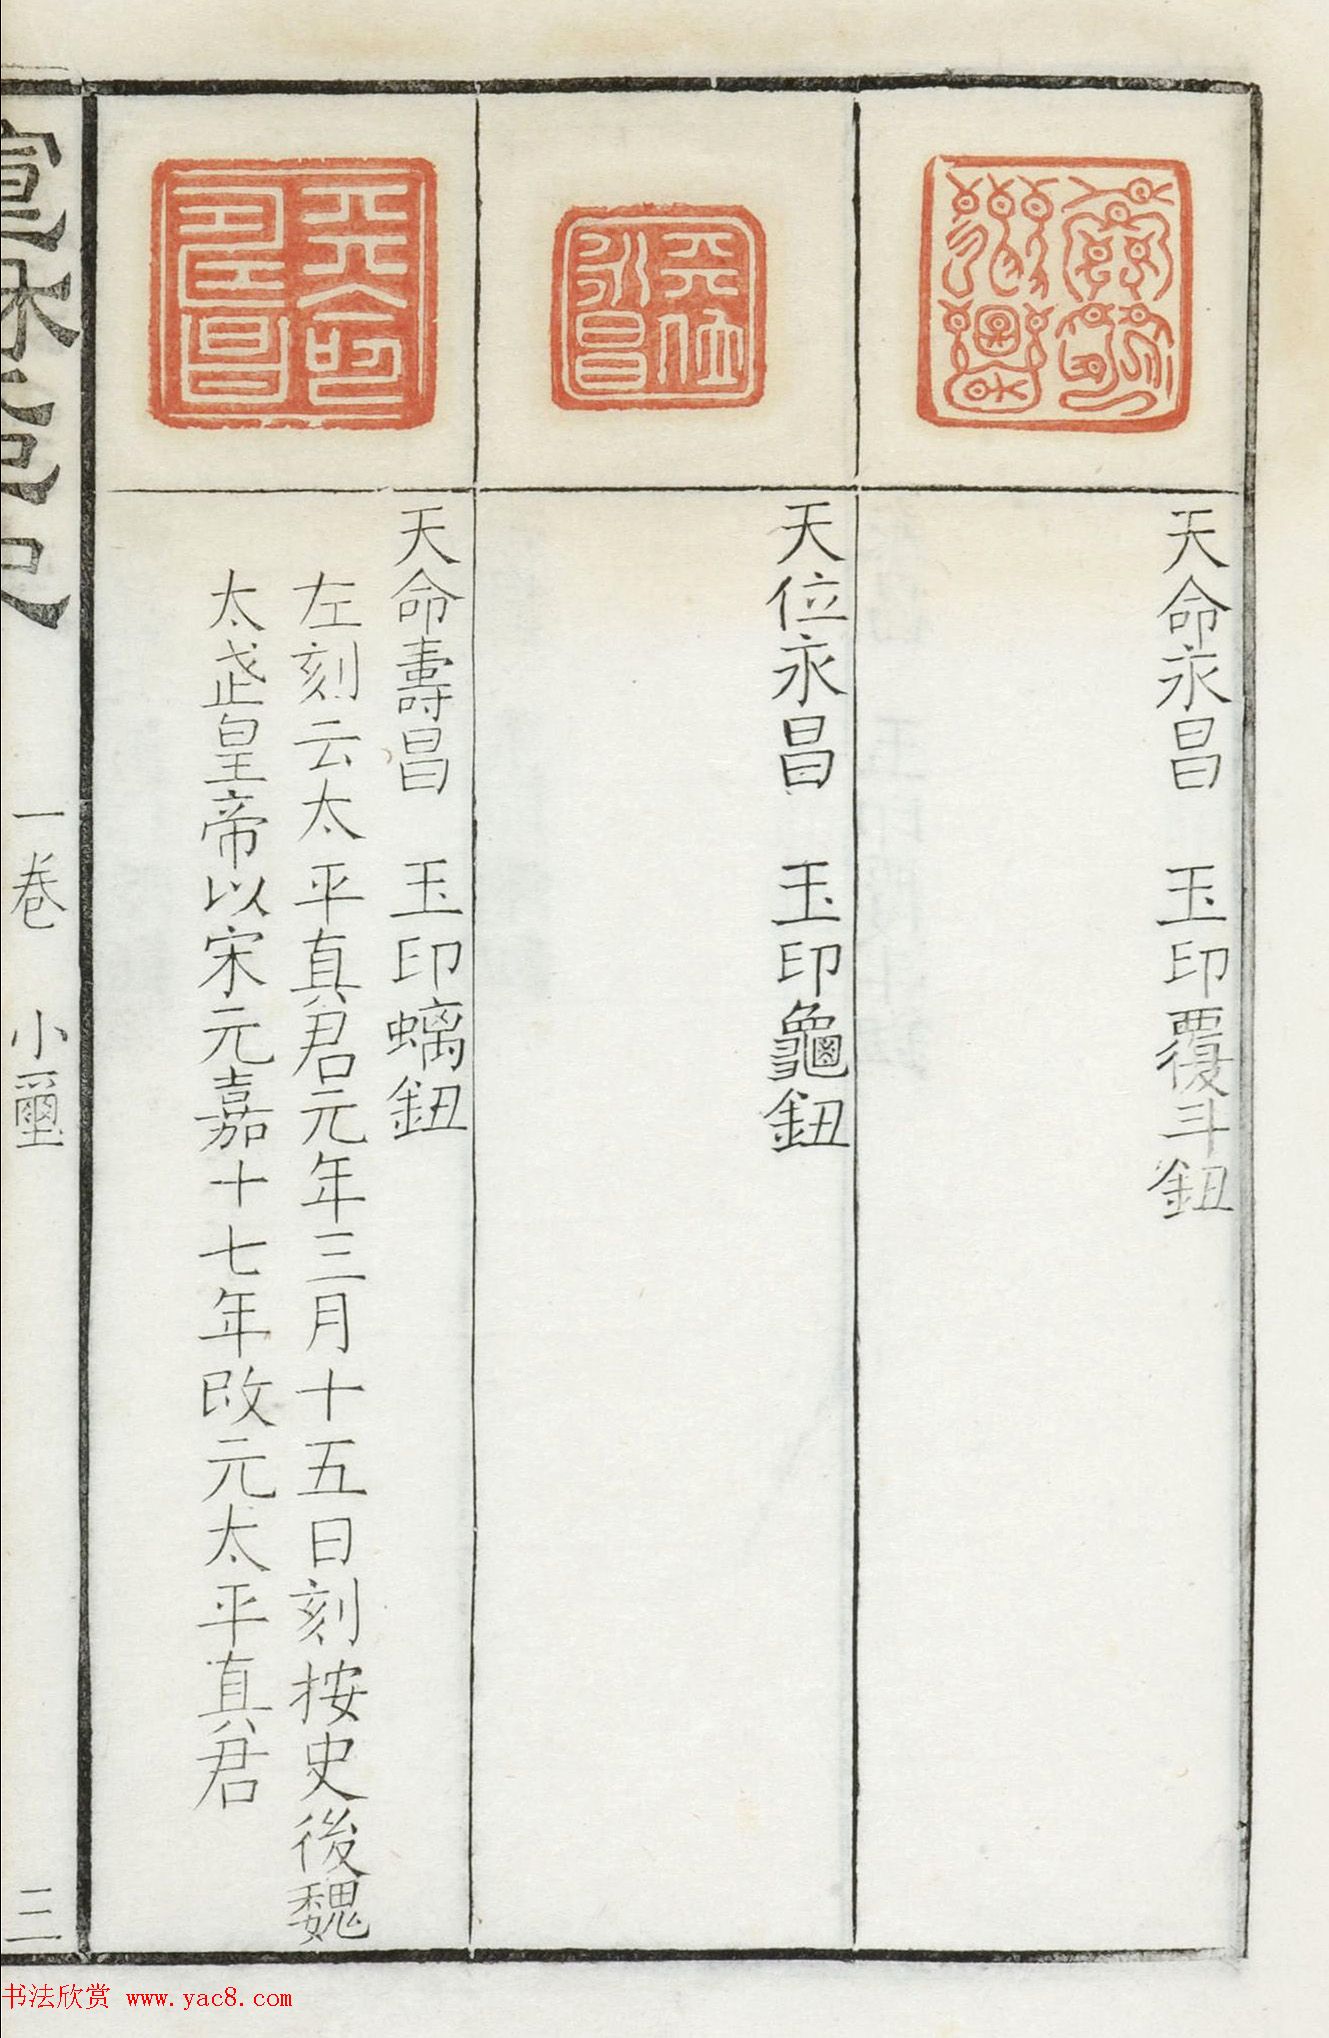 天命永昌　玉印覆斗鈕
天位永昌　玉印龜鈕
天命壽昌　玉印螭鈕
左刻云太平真君元年三月十五日刻按史後魏
太武皇帝以宋元嘉十七年改元太平真君
宣和
一卷　小璽
三
天位永昌
书法欣赏 www.yac8.com